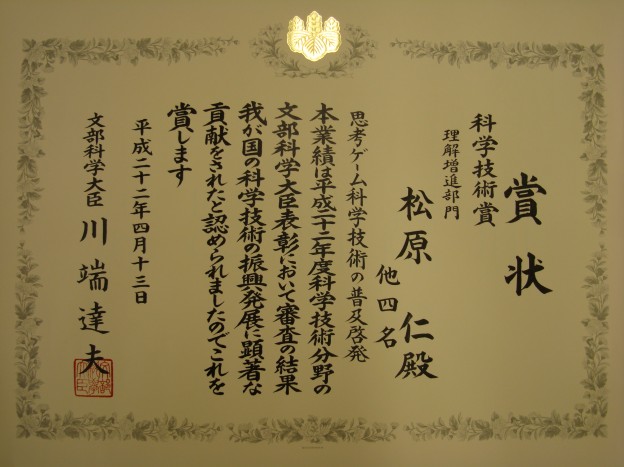 賞状
科学技術賞
理解増進部門
松原 仁殿
他四名
思考ゲーム科学技術の普及啓発
本業績は平成二十二年度科学技術分野の
文部科学大臣表彰において審査の結果
我が国の科学技術の振興発展に顕著な
貢献をされたと認められましたのでこれを
賞します
平成二十二年四月十三日
文部科学大臣 川端達夫